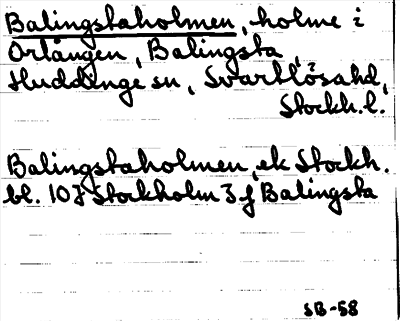 Balingstaholmen, holme i
Orlången, Balingsta,
Huddinge sn, Svartlösa hd,
Stockh. l.
Balingstaholmen, ek Stockh.
bl. 10J Stockholm 3 f Balingsta
SB-58